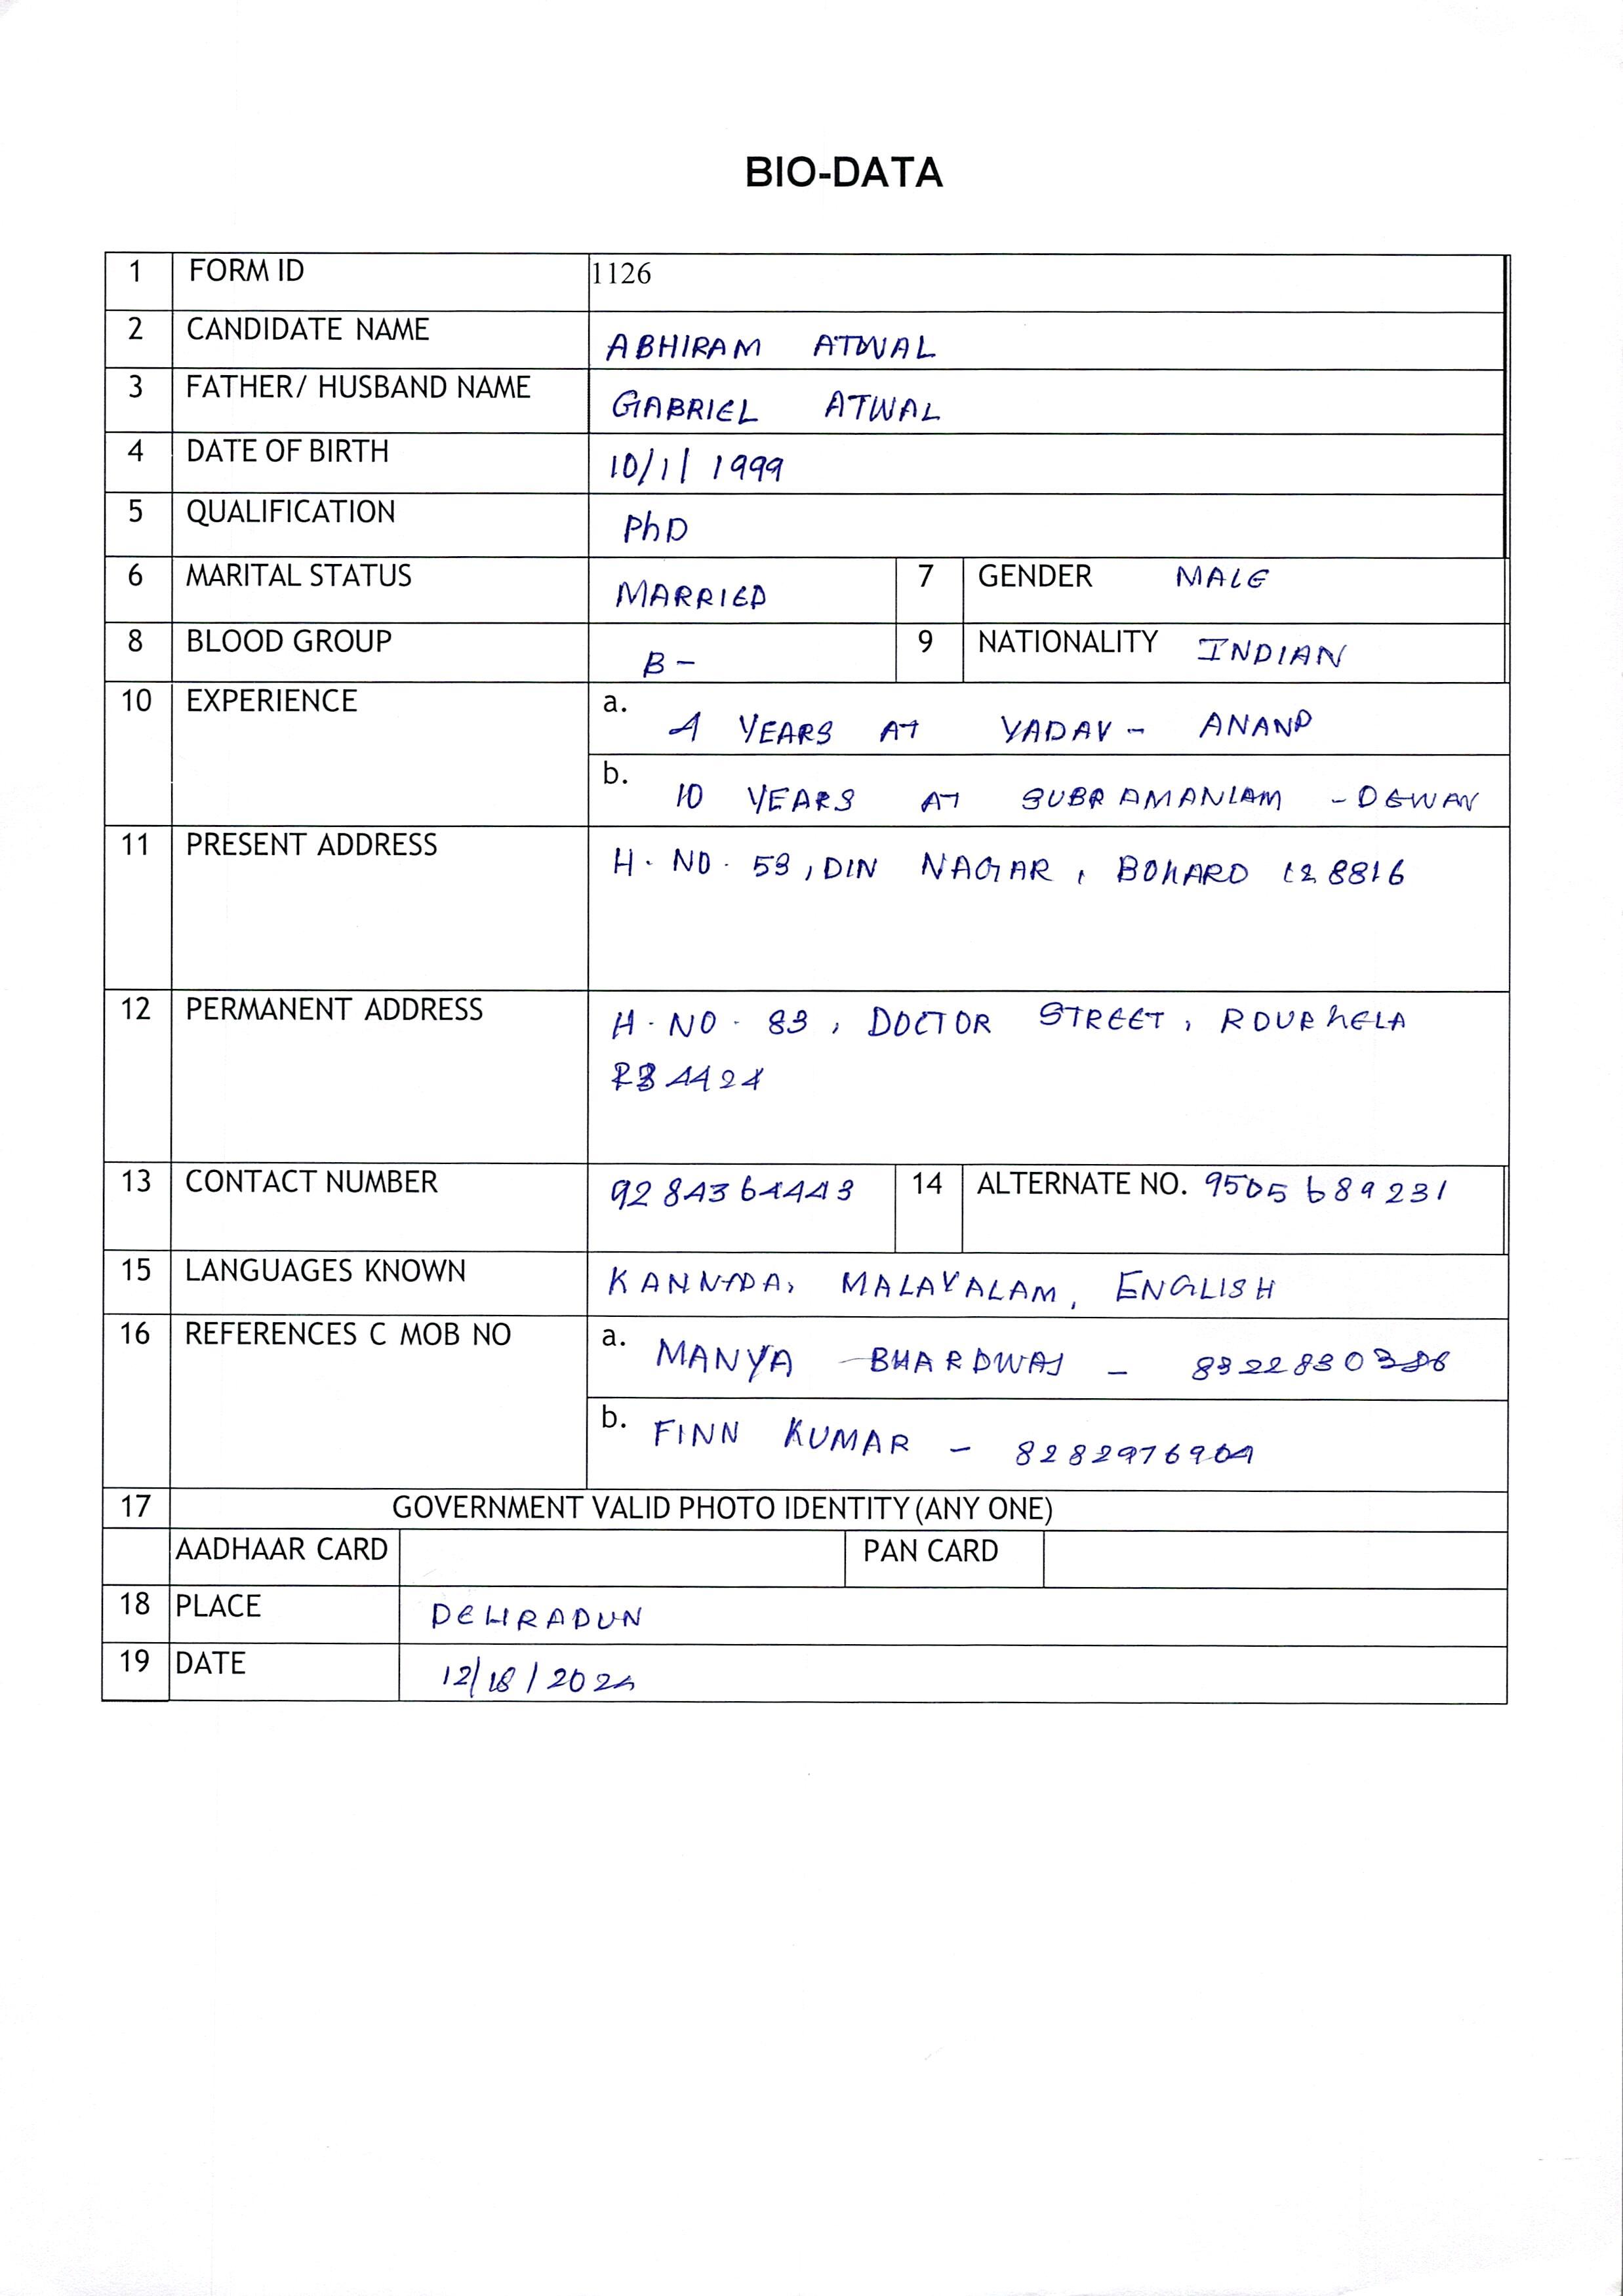 BIO-DATA
1 FORM ID 1126
2 CANDIDATE NAME ABHIRAM ATWAL
3 FATHER/ HUSBAND NAME GABRIEL ATWAL
4 DATE OF BIRTH 10/1/1999
5 QUALIFICATION PhD
6 MARITAL STATUS MARRIED 7 GENDER MALE
8 BLOOD GROUP B- 9 NATIONALITY INDIAN
10 EXPERIENCE a. 4 YEARS AT YADAV- ANAND
b. 10 YEARS AT SUBRAMANIAM -DEWAN
11 PRESENT ADDRESS H. NO. 53, DIN NAGAR, BOKARO 128816
12 PERMANENT ADDRESS H. NO. 83, DOCTOR STREET, ROURKELA
13 CONTACT NUMBER 9284364443 14 ALTERNATE NO. 9505689231
15 LANGUAGES KNOWN KANNADA, MALAYALAM, ENGLISH
16 REFERENCES C MOB NO a. MANYA BHARDWAJ -
b. FINN KUMAR - 8282976904
17 GOVERNMENT VALID PHOTO IDENTITY (ANY ONE)
AADHAAR CARD PAN CARD
18 PLACE DEHRADUN
19 DATE 12/18/2024